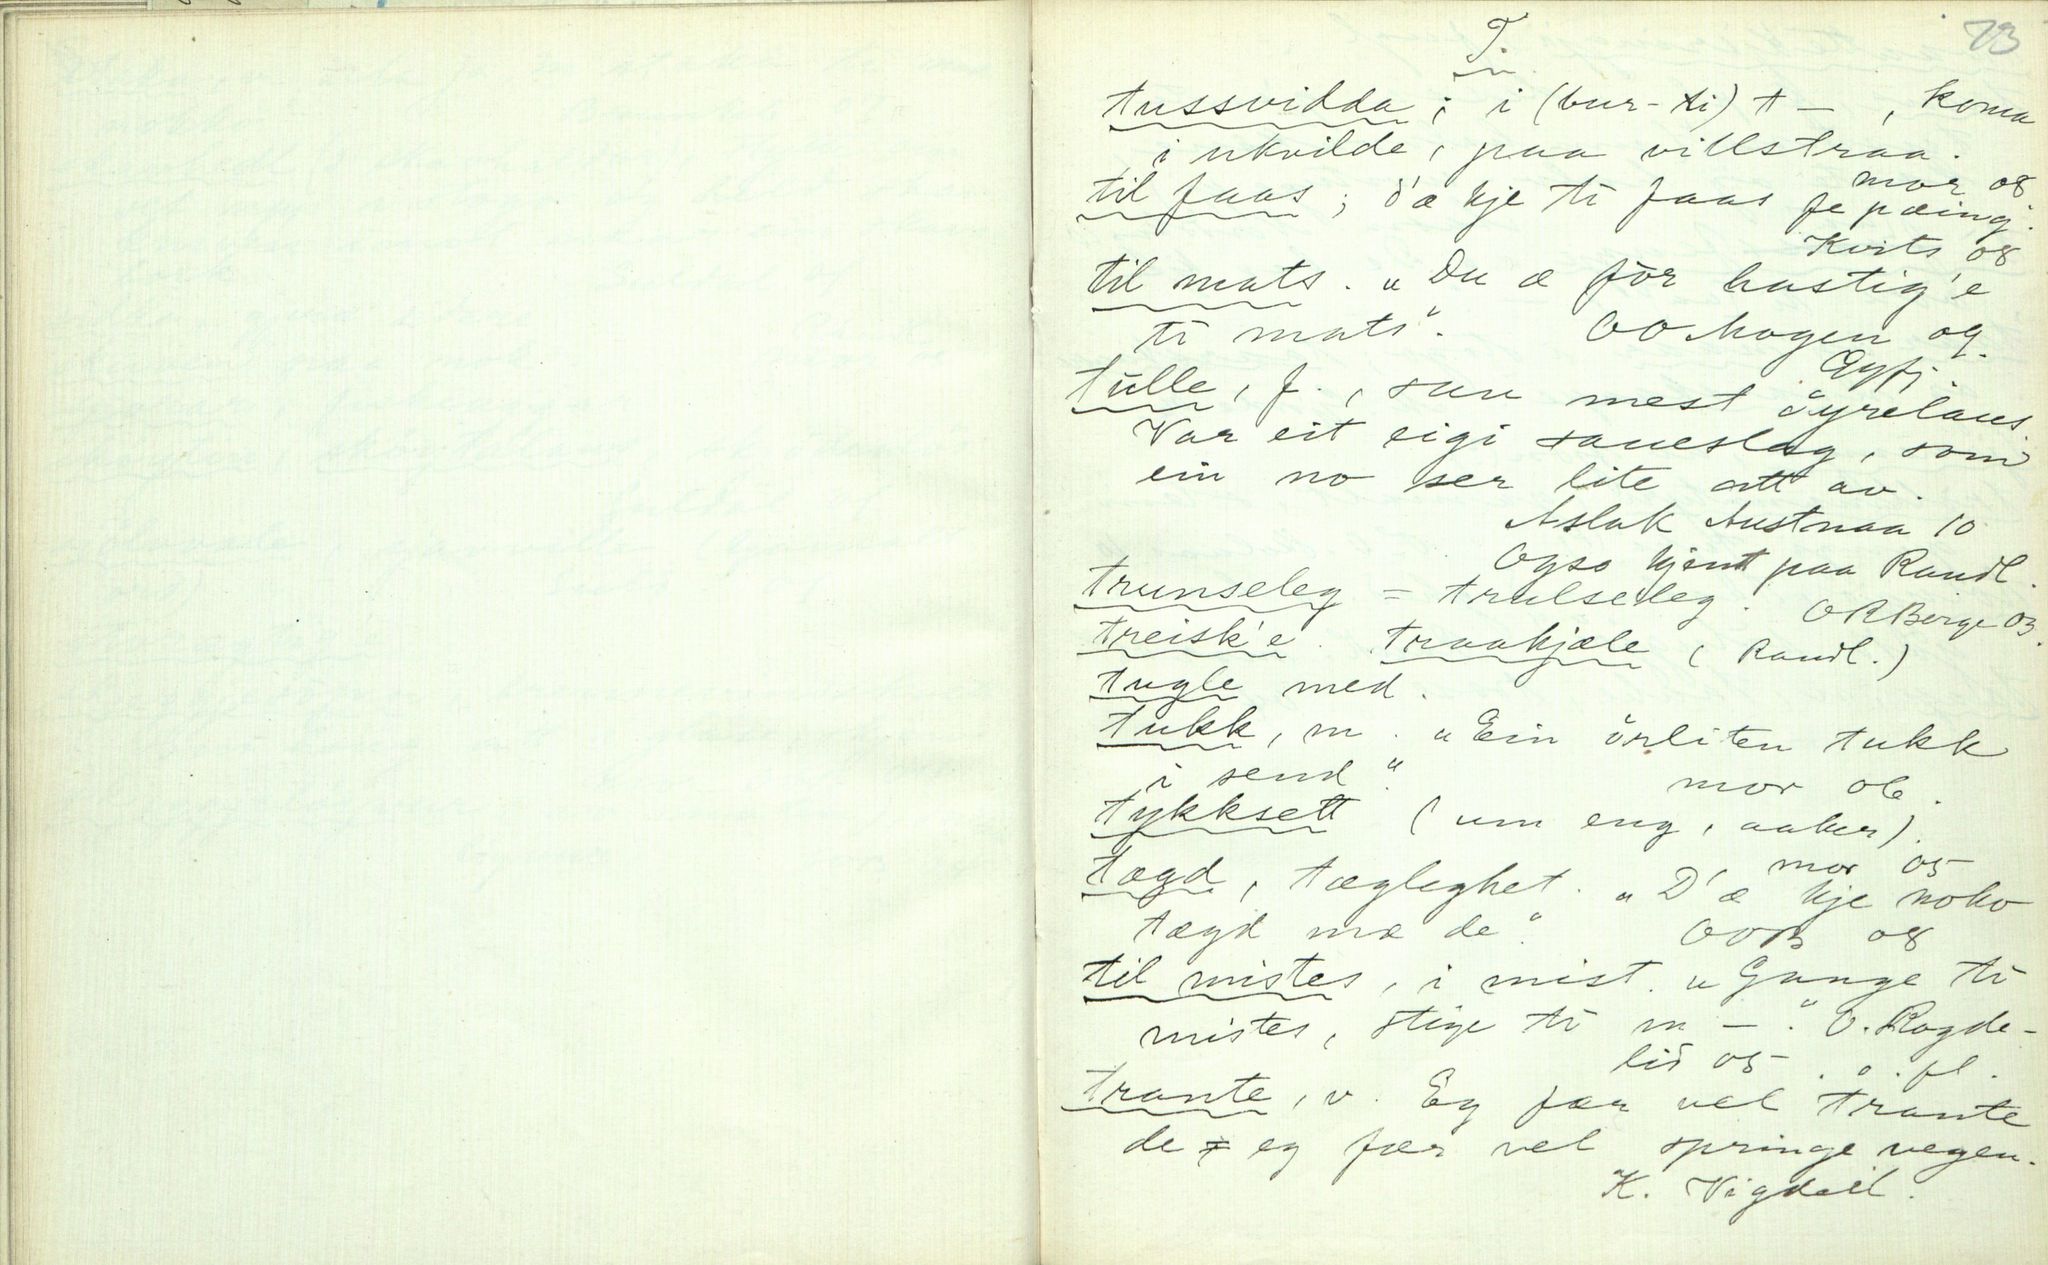 73
T.
tussvidda; i (bur-ti) t — , koma
i ukvilde, paa villstraa.
mor 08
til faas; d'æ kje ti faas fe pæing.
Kvits 08
til mats. "Du æ för hastig'e
ti mats". OO Mogen og
tulle, f., sau mest öyrelaus
Var eit eigi saueslag, som
ein no ser lite att av.
Aslak Austnaa 10
Ogso kjent paa Raudl.
trunseleg = trulseleg. OR Berge 03.
treisk'e. traakjæle (Raudl.)
tugle med.
tukk, m. "Ein örliten tukk
i send". mor 06.
tykksett (um eng, aaker).
mor 05
tægd, tægleghet. "D'æ kje noko
tægd mæ de". OOB 08
til mistes, i mist. "Gange ti
mistes, stige ti m —". O. Rogde-
lid 05 . o. fl.
trante, v. Eg fær vel trante
de = eg fær vel springe vegen.
K. Vigdal.